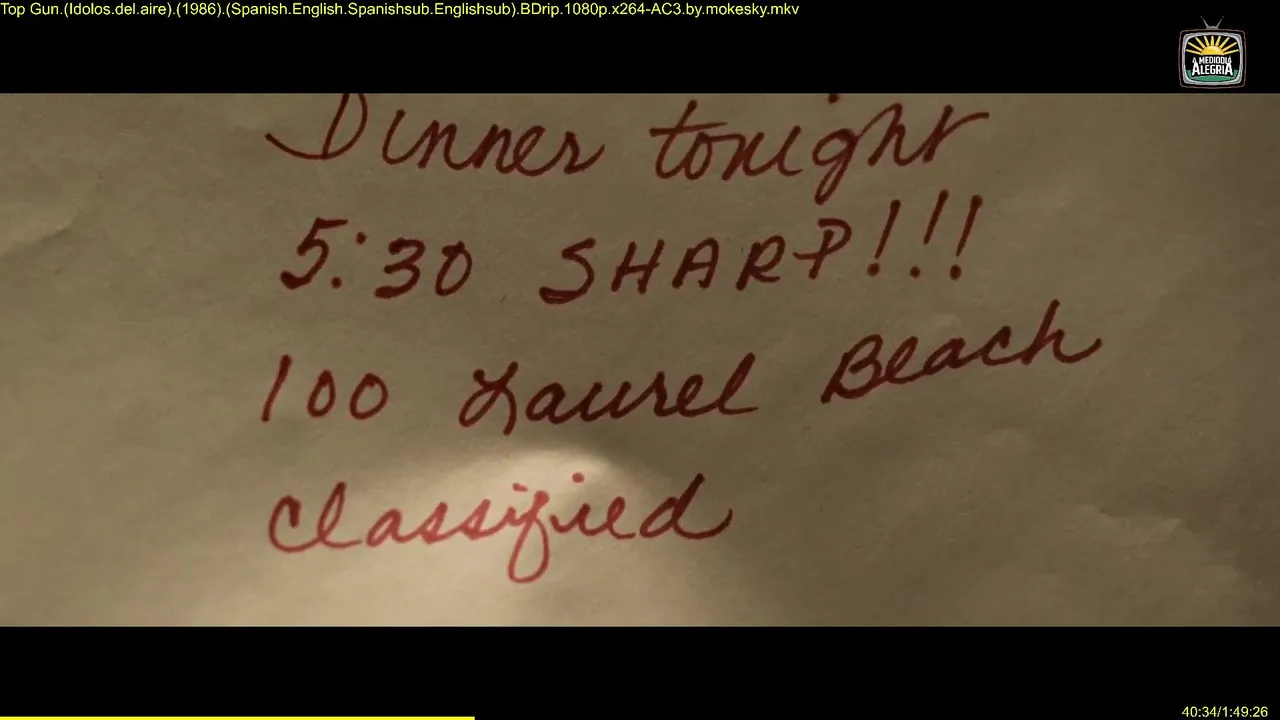 Top Gun.(Idolos.del.aire).(1986).(Spanish.English.Spanishsub.Englishsub).BDrip.1080p.x264-AC3.by.mokesky.mkv
A MEDIODÍA
ALEGRÍA
Dinner tonight
5:30 SHARP!!!
100 Laurel Beach
classified
40:34/1:49:26